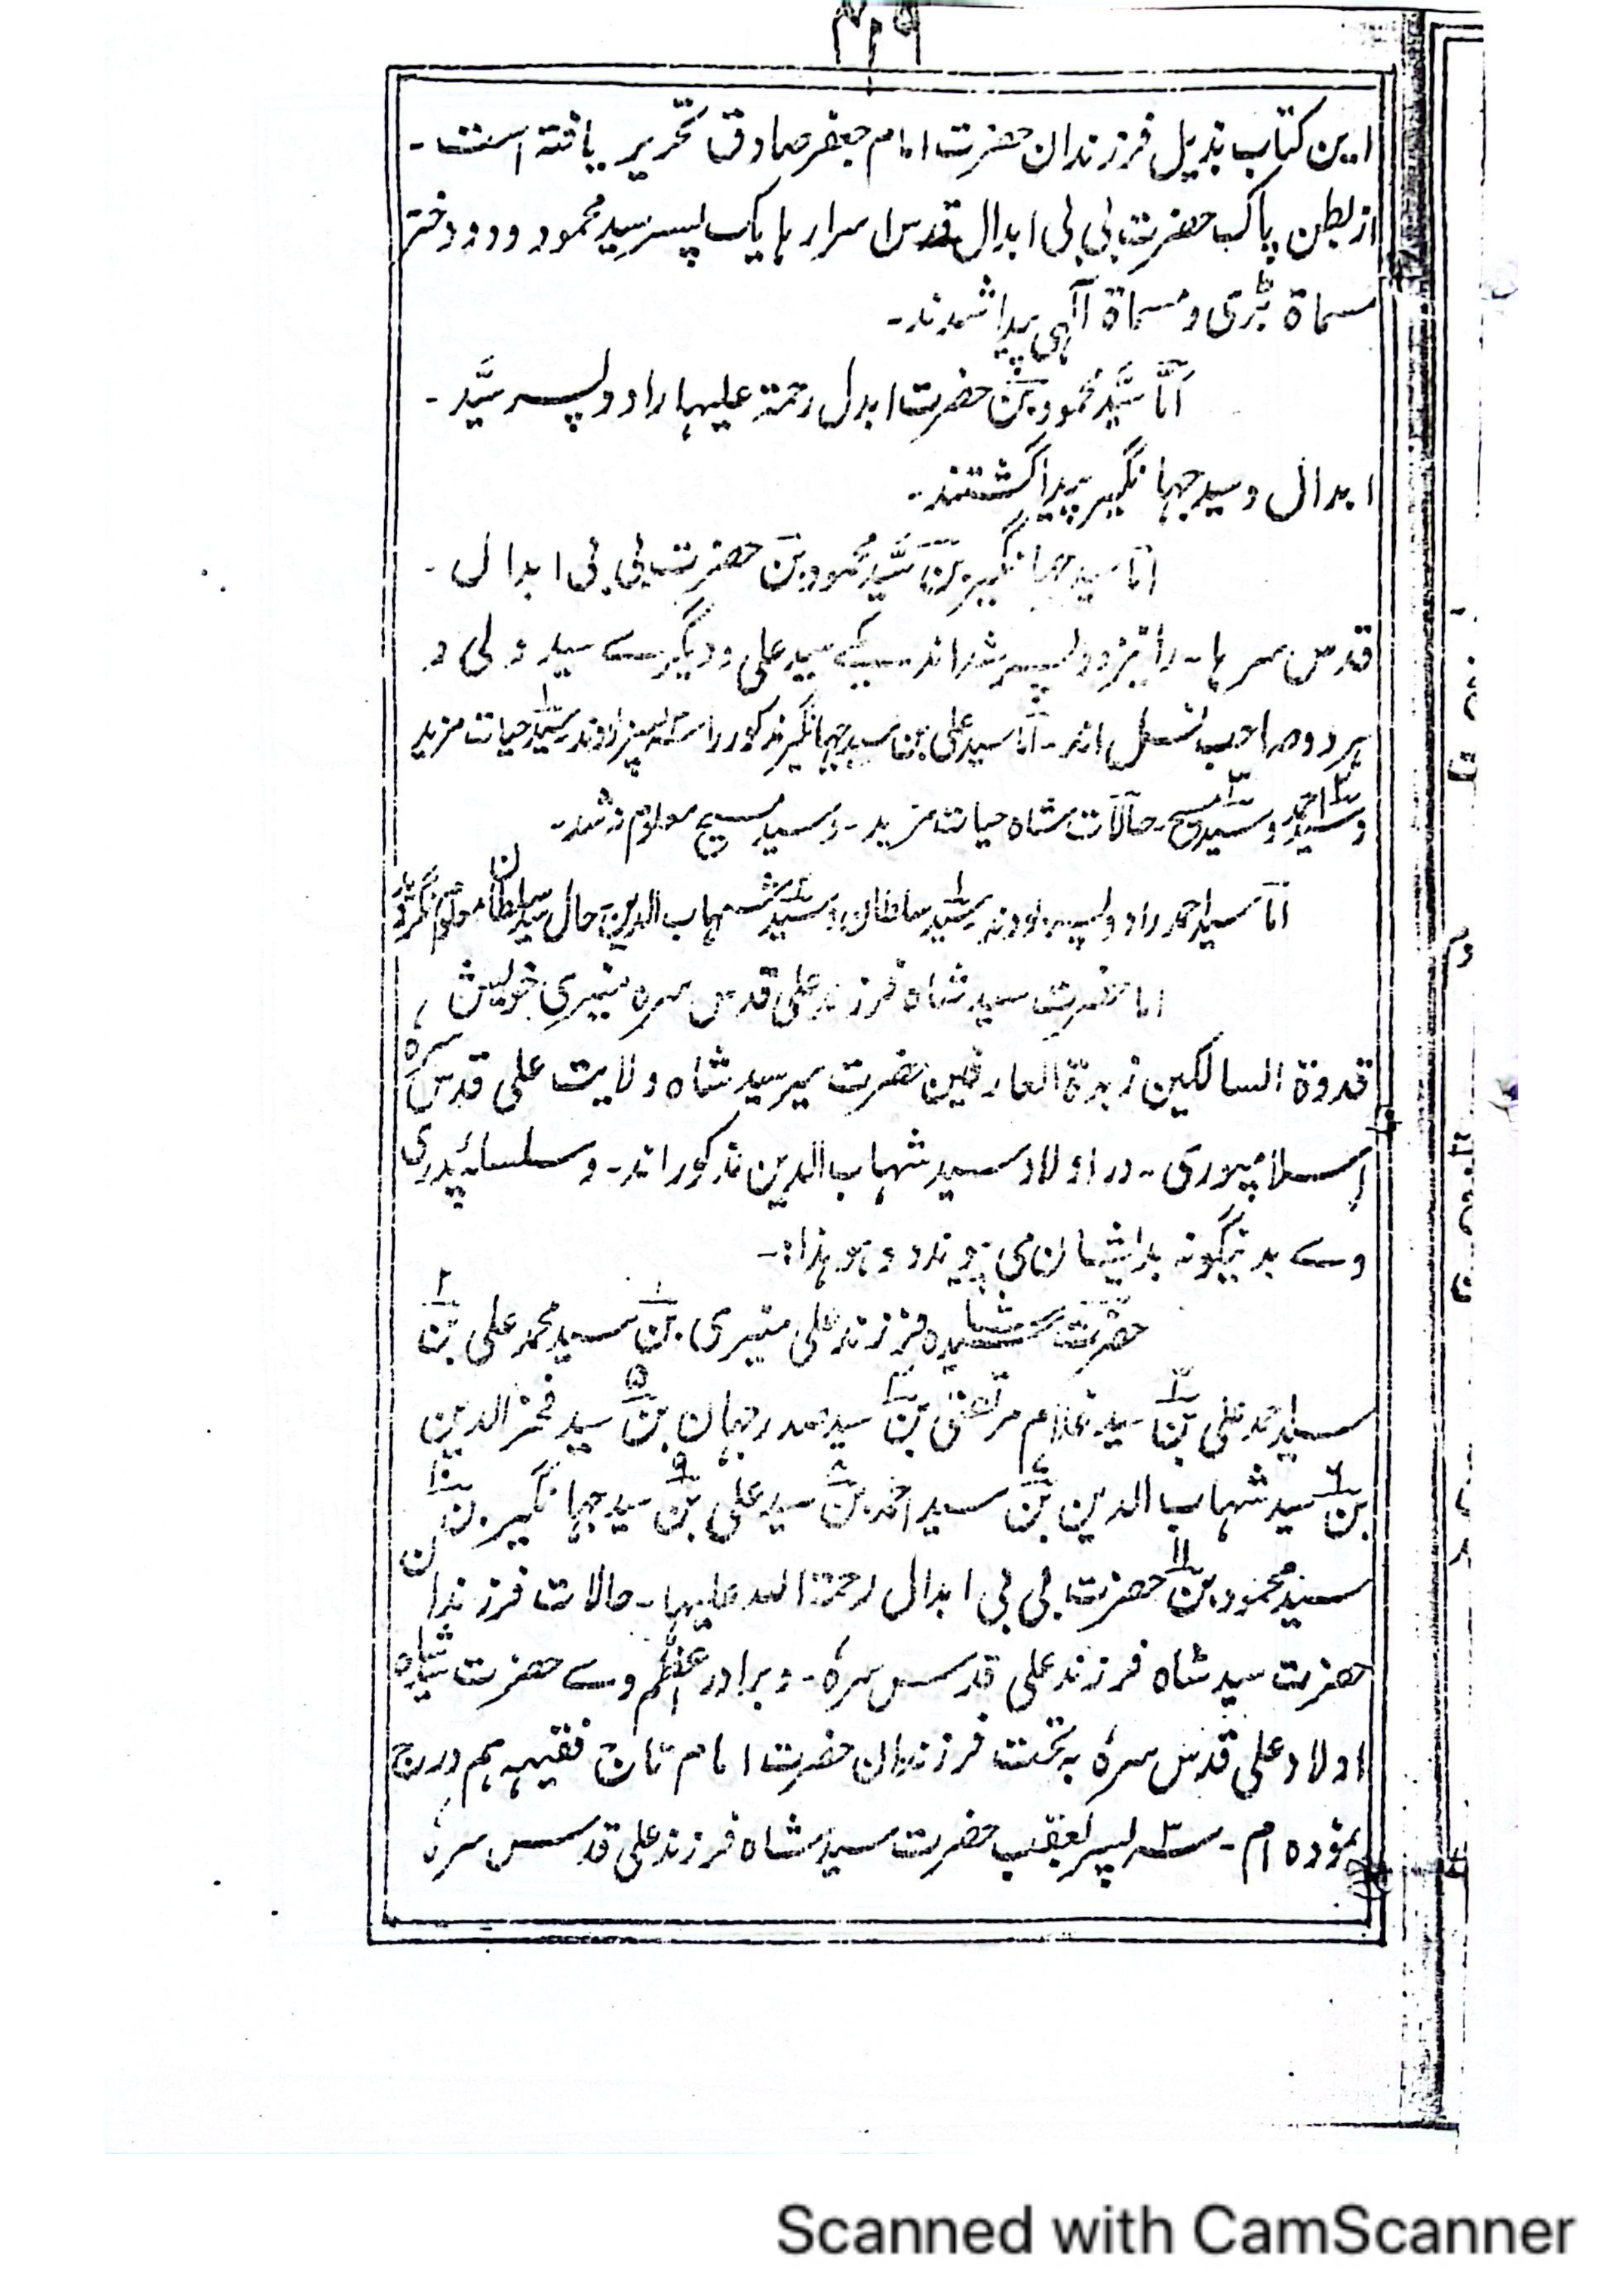 این کتاب بذیل فرزندان حضرت امام جعفر صادق تحریر یافتہ است ۔
از بطن پاک حضرت بی بی ابدال قدس اسرارہا یک پسر سید محمود و دو دختر
مسماة بڑی و مسماة آلہی پیدا شدند ۔
امّا سیّد محمود بن حضرت ابدل رحمتہ علیہا را دو پسر سیّد ۔
ابدال و سید جہانگیر پیدا گشتند ۔
امّا سید جہانگیر بن سیّد محمود بن حضرت بی بی ابدال ۔
قدس سرہا ۔ را نیز دو پسر شدند یکے سید علی و دیگرے سید ولی و
ہر دو صاحب نسل اند ۔ امّا سید علی بن سید جہانگیر مذکور را سہ پسر بودند ۱ سید حیات مزید
و ۲ سید احمد و ۳ سید مسیح ۔ حالات شاہ حیات مزید ۔ و سید مسیح معلوم نشد ۔
امّا سید احمد را دو پسر بودند ۱ سیّد سلطان و ۲ سیّد شہاب الدین حال سید سلطان معلوم نگردید
اما حضرت سید شاہ فرزند علی قدس سرہ منیری خویش
قدوة السالکین زبدة العارفین حضرت میر سید شاہ ولایت علی قدس سرہ
اسلامپوری ۔ در اولاد سید شہاب الدین مذکور اند ۔ و سلسلۂ پدری
وے بدینگونہ بدایشان می پیوندد و ہو ہذا :۔
حضرت سید شاہ فرزند علی منیری بن ۱ سید محمد علی بن ۲
سید احمد علی بن ۳ سید غلام مرتضی بن ۴ سید صدر جہان بن ۵ سید فخر الدین
بن ۶ سید شہاب الدین بن ۷ سید احمد بن ۸ سید علی بن ۹ سید جہانگیر بن ۱۰
سید محمود بن ۱۱ حضرت بی بی ابدال رحمتہ اللہ علیہا ۔ حالات فرزندان
حضرت سید شاہ فرزند علی قدس سرہٗ ۔ و برادر اعظم وے حضرت شاہ
اولاد علی قدس سرہٗ بہ تحت فرزندان حضرت امام تاج فقیہہ ہم درج
نمودہ ام ۔ سہ پسر بعقب حضرت سید شاہ فرزند علی قدس سرہٗ
Scanned with CamScanner